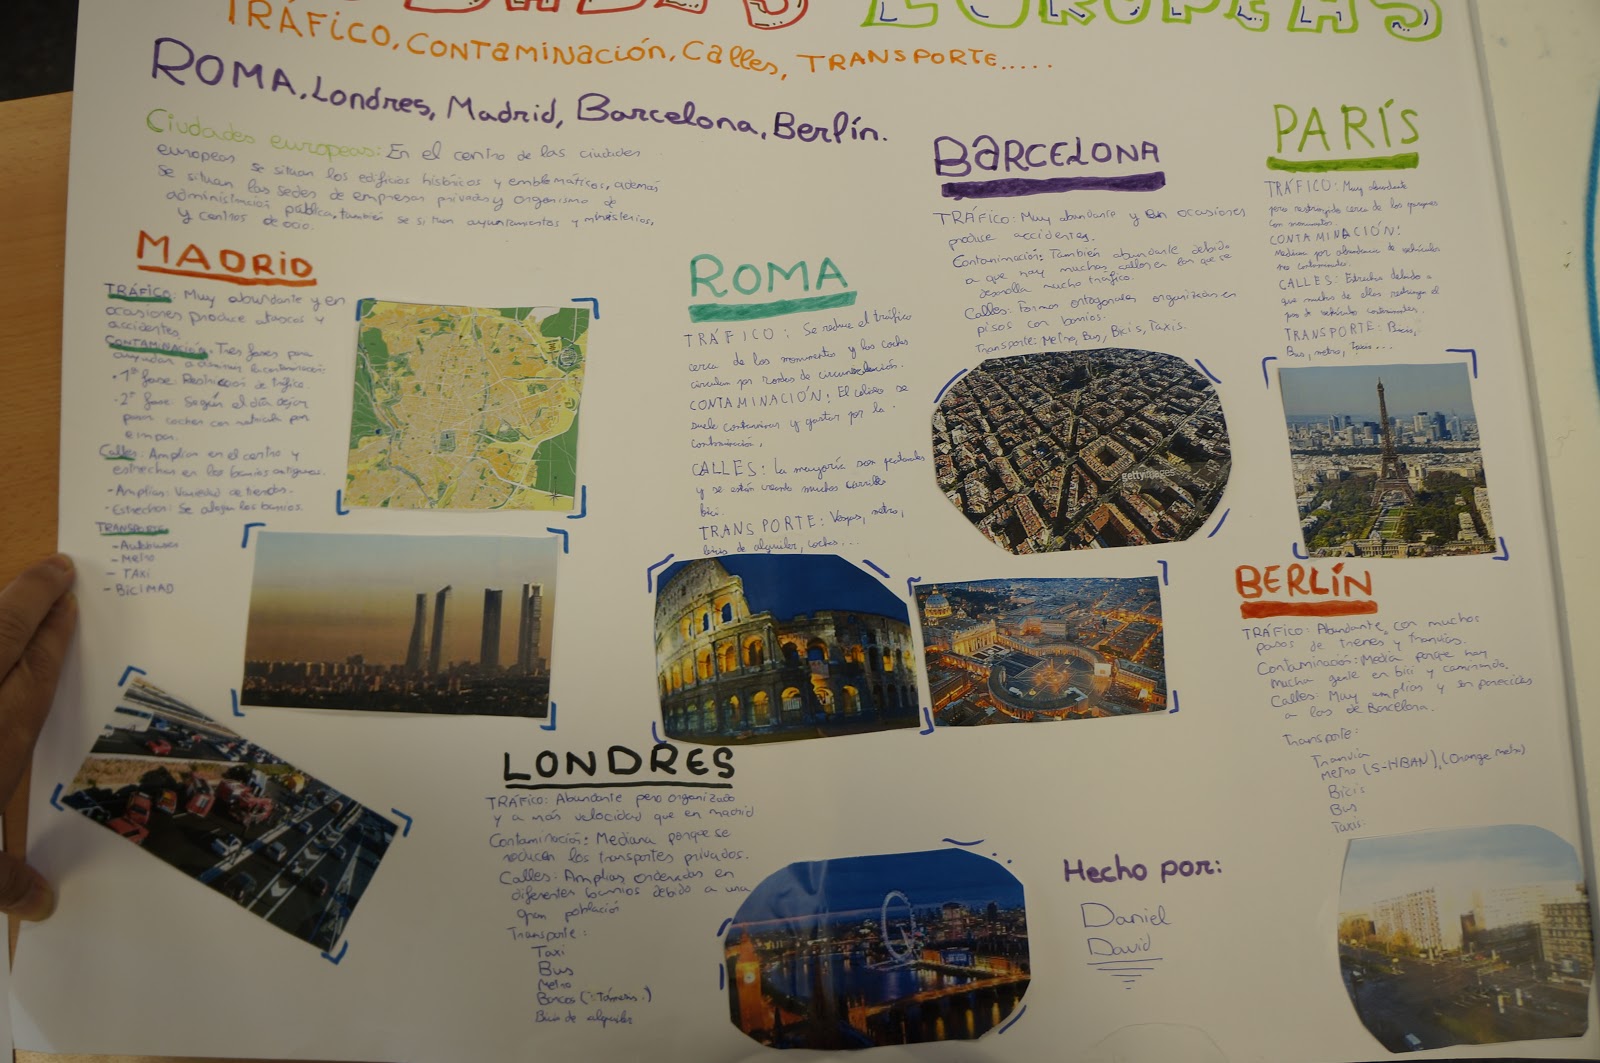 EUROPEAS
TRÁFICO, CONTAMINACIÓN, CALLES, TRANSPORTE.....
ROMA, Londres, Madrid, Barcelona, Berlín.
Ciudades europeas: En el centro de las ciudades
europeas se situan los edificios históricos y emblemáticos, además
se situan las sedes de empresas privadas y organismo de
administración pública, también se situan ayuntamientos y ministerios,
y centros de ocio.
MADRID
TRÁFICO: Muy abundante y en
ocasiones produce atascos y
accidentes
CONTAMINACIÓN: Tres fases para
ayudar a disminuir la contaminación
· 1ª fase: Restricción de tráfico.
· 2ª fase: Según el día dejar
pasar coches con matrícula par
e impar.
Calles: Amplias en el centro y
estrechas en los barrios antiguos.
- Amplias: Variedad de tiendas.
- Estrechas: Se alojan los barrios.
TRANSPORTE
- Autobuses
- Metro
- TAXI
- BICIMAD
ROMA
TRÁFICO: Se reduce el tráfico
cerca de los monumentos y los coches
circulan por rondas de circunvalación.
CONTAMINACIÓN: El se
suele contaminar y gastar por la
contaminación.
CALLES: La mayoría son peatonales
y se están creando muchos carriles
bici.
TRANSPORTE: Vespas, metro,
bicis de alquiler, coches...
BARCELONA
TRÁFICO: Muy abundante y en ocasiones
produce accidentes.
Contaminación: También abundante debido
a que hay muchas calles en las que se
desarrolla mucho tráfico.
Calles: Formas ortogonales organizadas en
pisos con barrios.
Transporte: Metro, Bus, Bicis, Taxis.
gettyimages
PARÍS
TRÁFICO: Muy abundante
pero restringido cerca de los parques
con monumentos
CONTAMINACIÓN:
Mediana por abundancia de vehículos
no contaminantes.
CALLES: Estrechas debido a
que muchas de ellas restringe el
paso de vehículos contaminantes.
TRANSPORTE: Bicis,
Bus, metro, taxis...
BERLÍN
TRÁFICO: Abundante, con muchos
pasos de trenes y tranvías.
Contaminación: Media porque hay
mucha gente en bici y caminando.
Calles: Muy amplias y son parecidas
a las de Barcelona.
Transporte:
Tranvía
Metro (S-HBAN), (Orange metro)
Bicis
Bus
Taxis.
LONDRES
TRÁFICO: Abundante pero organizado
y a más velocidad que en madrid
Contaminación: Mediana porque se
reducen los transportes privados.
Calles: Amplias ordenadas en
diferentes barrios debido a una
gran población
Transporte:
Taxi
Bus
Metro
Barcos (Támesis.)
Bicis de alquiler
Hecho por:
Daniel
David